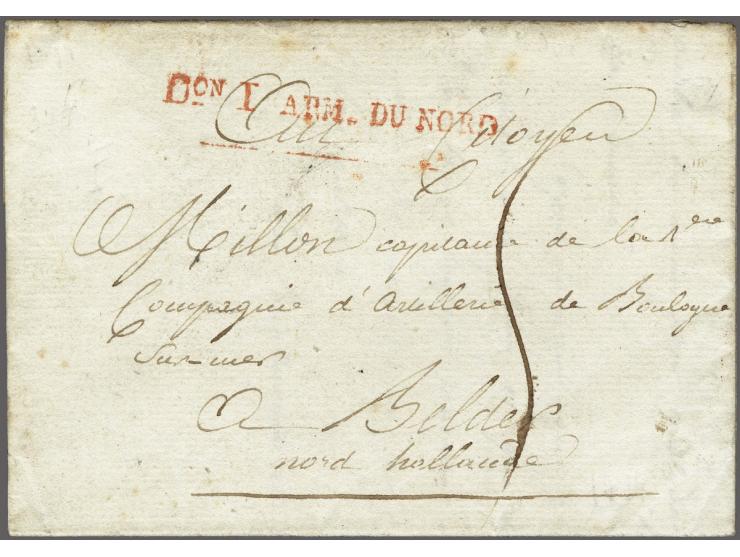 DON I ARM. DU NORD
Au Citoyen
Millon capitaine de la 1ere
Compagnie d'artillerie de Boulogne
sur-mer
a Helder
nord hollande
5